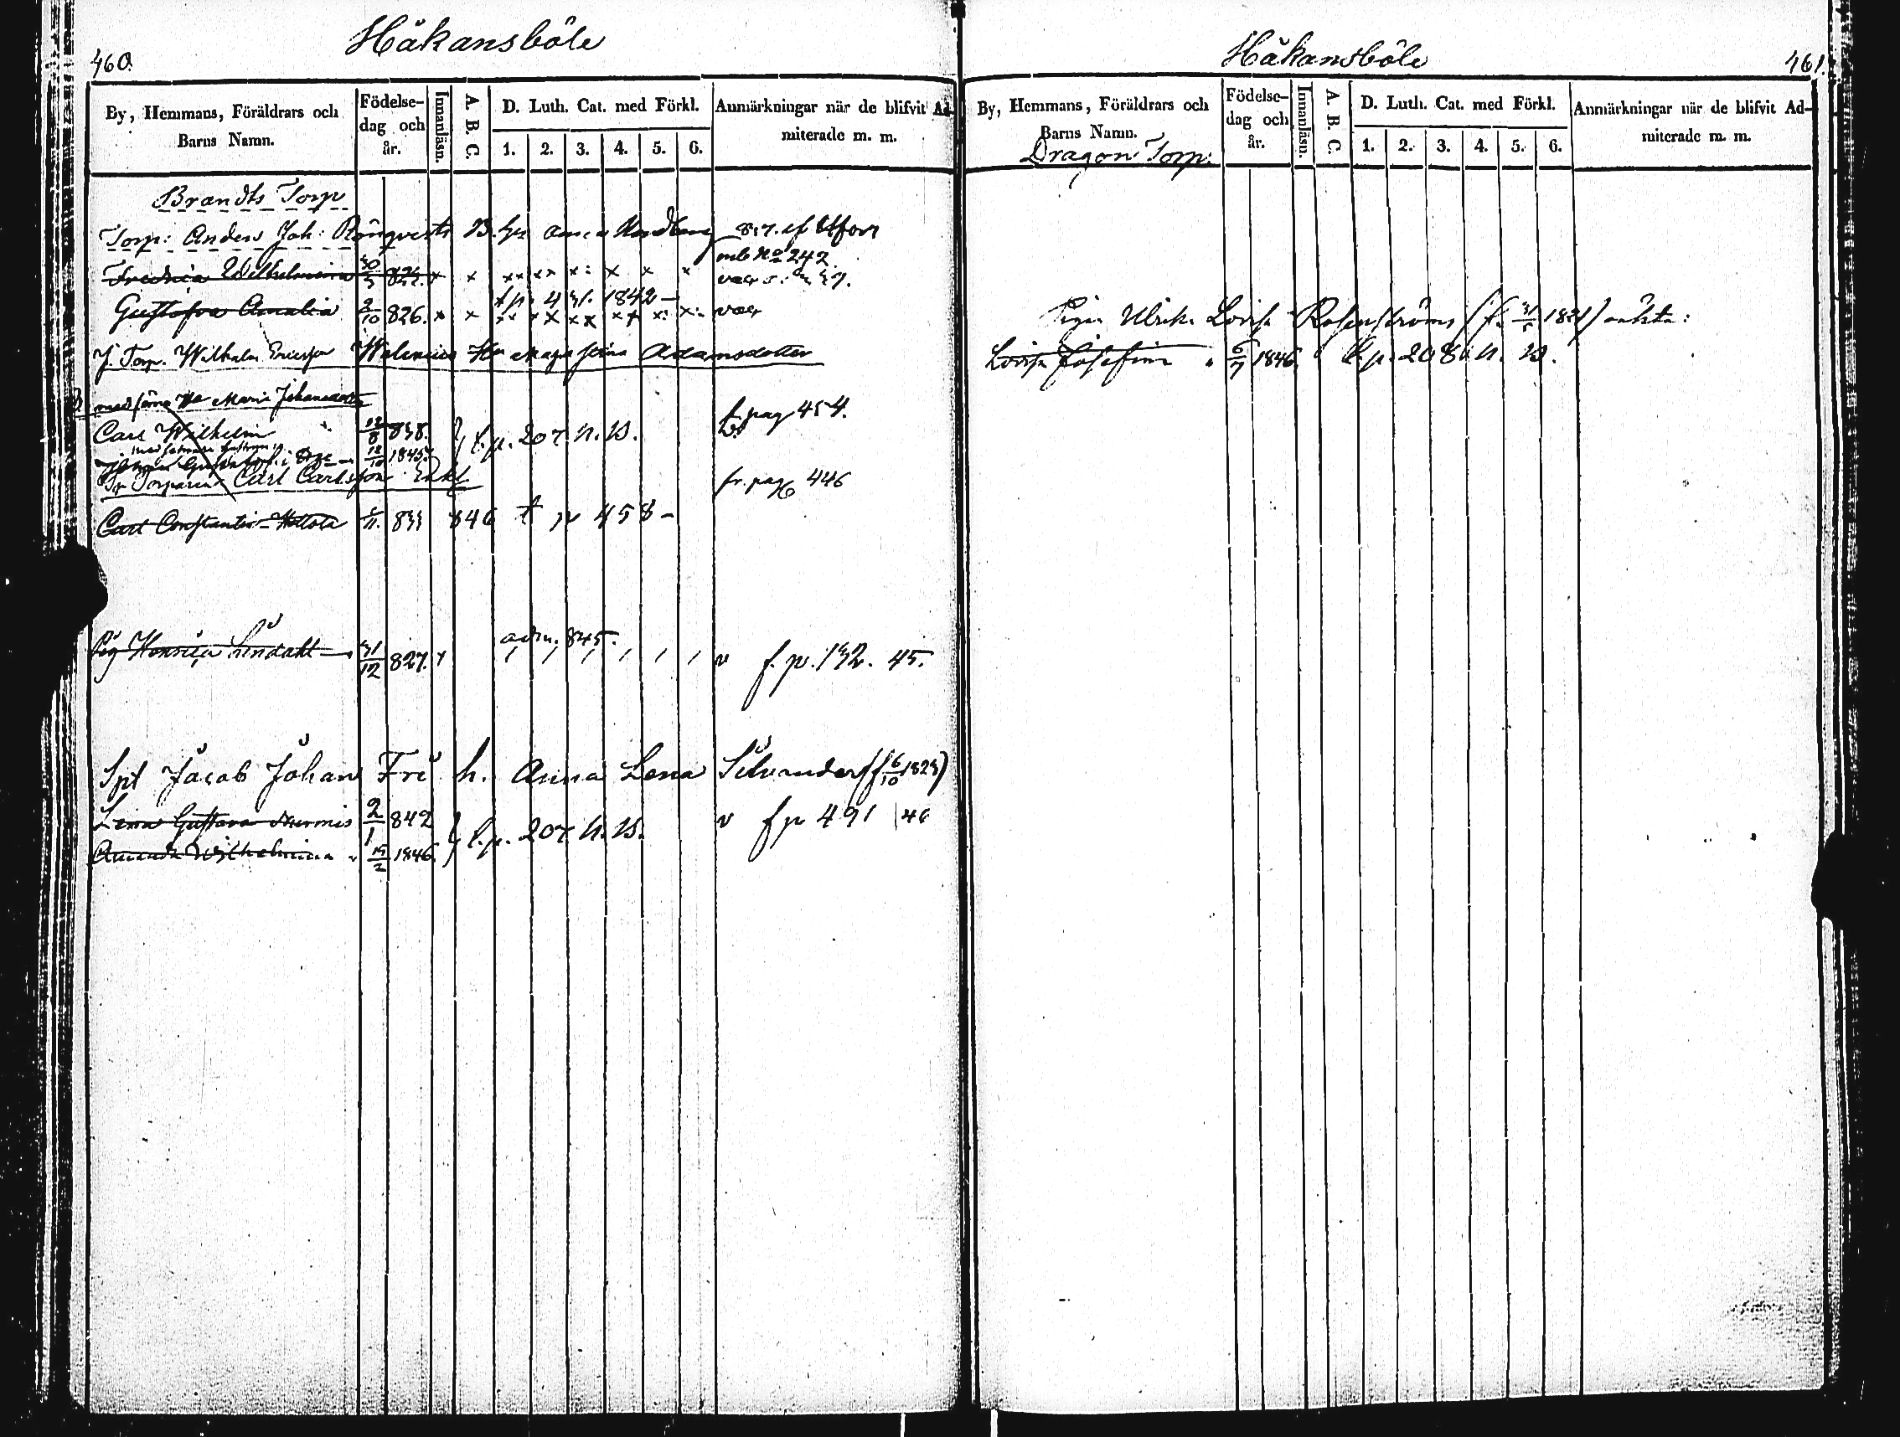 460.
Håkansböle
By, Hemmans, Föräldrars och Barns Namn.
Födelsedag och år.
Innanläsn.
A. B. C.
D. Luth. Cat. med Förkl.
1. 2. 3. 4. 5. 6.
Anmärkningar när de blifvit Admitterade m. m.
Brandts Torp
Torp: Anders Joh: Rönqvists
Fredrica Wilhelmina 824.
mb No 242.
t. p. 431. 1842 –
Gustafva Amalia 2/10 826.
J. Torp. Wilhelm Ericsson Walenius Hu Maja Stina Adamsdotter
Maria Johansdotter
Carl Wilhelm 12/8 838. t. p. 207. N. B. f. pag 454.
12/10 1845
Torparen Carl Carlsson Enkl fr. pag 446
Carl Constantin 833 846 t p 458 –
adm. 845.
Pig Henrica Lindahl 31/12 827. v f. p. 132. 45.
Spt Jacob Johan Fri h. Anna Lena Silvander (f 6/10 1823)
Lena Gustava Nurmis 2/1 842 v f p 491 | 46
t. p. 207 N. B.
Amanda Wilhelmina 1846
Håkansböle
461.
By, Hemmans, Föräldrars och Barns Namn.
Födelsedag och år.
Innanläsn.
A. B. C.
D. Luth. Cat. med Förkl.
1. 2. 3. 4. 5. 6.
Anmärkningar när de blifvit Admitterade m. m.
Dragon Torp.
Pigan Ulrika Lovisa Rosenströms (f. 31/5 1821) oäkta:
Lovisa Josefina 6/7 1846. t. p. 208 N. B.